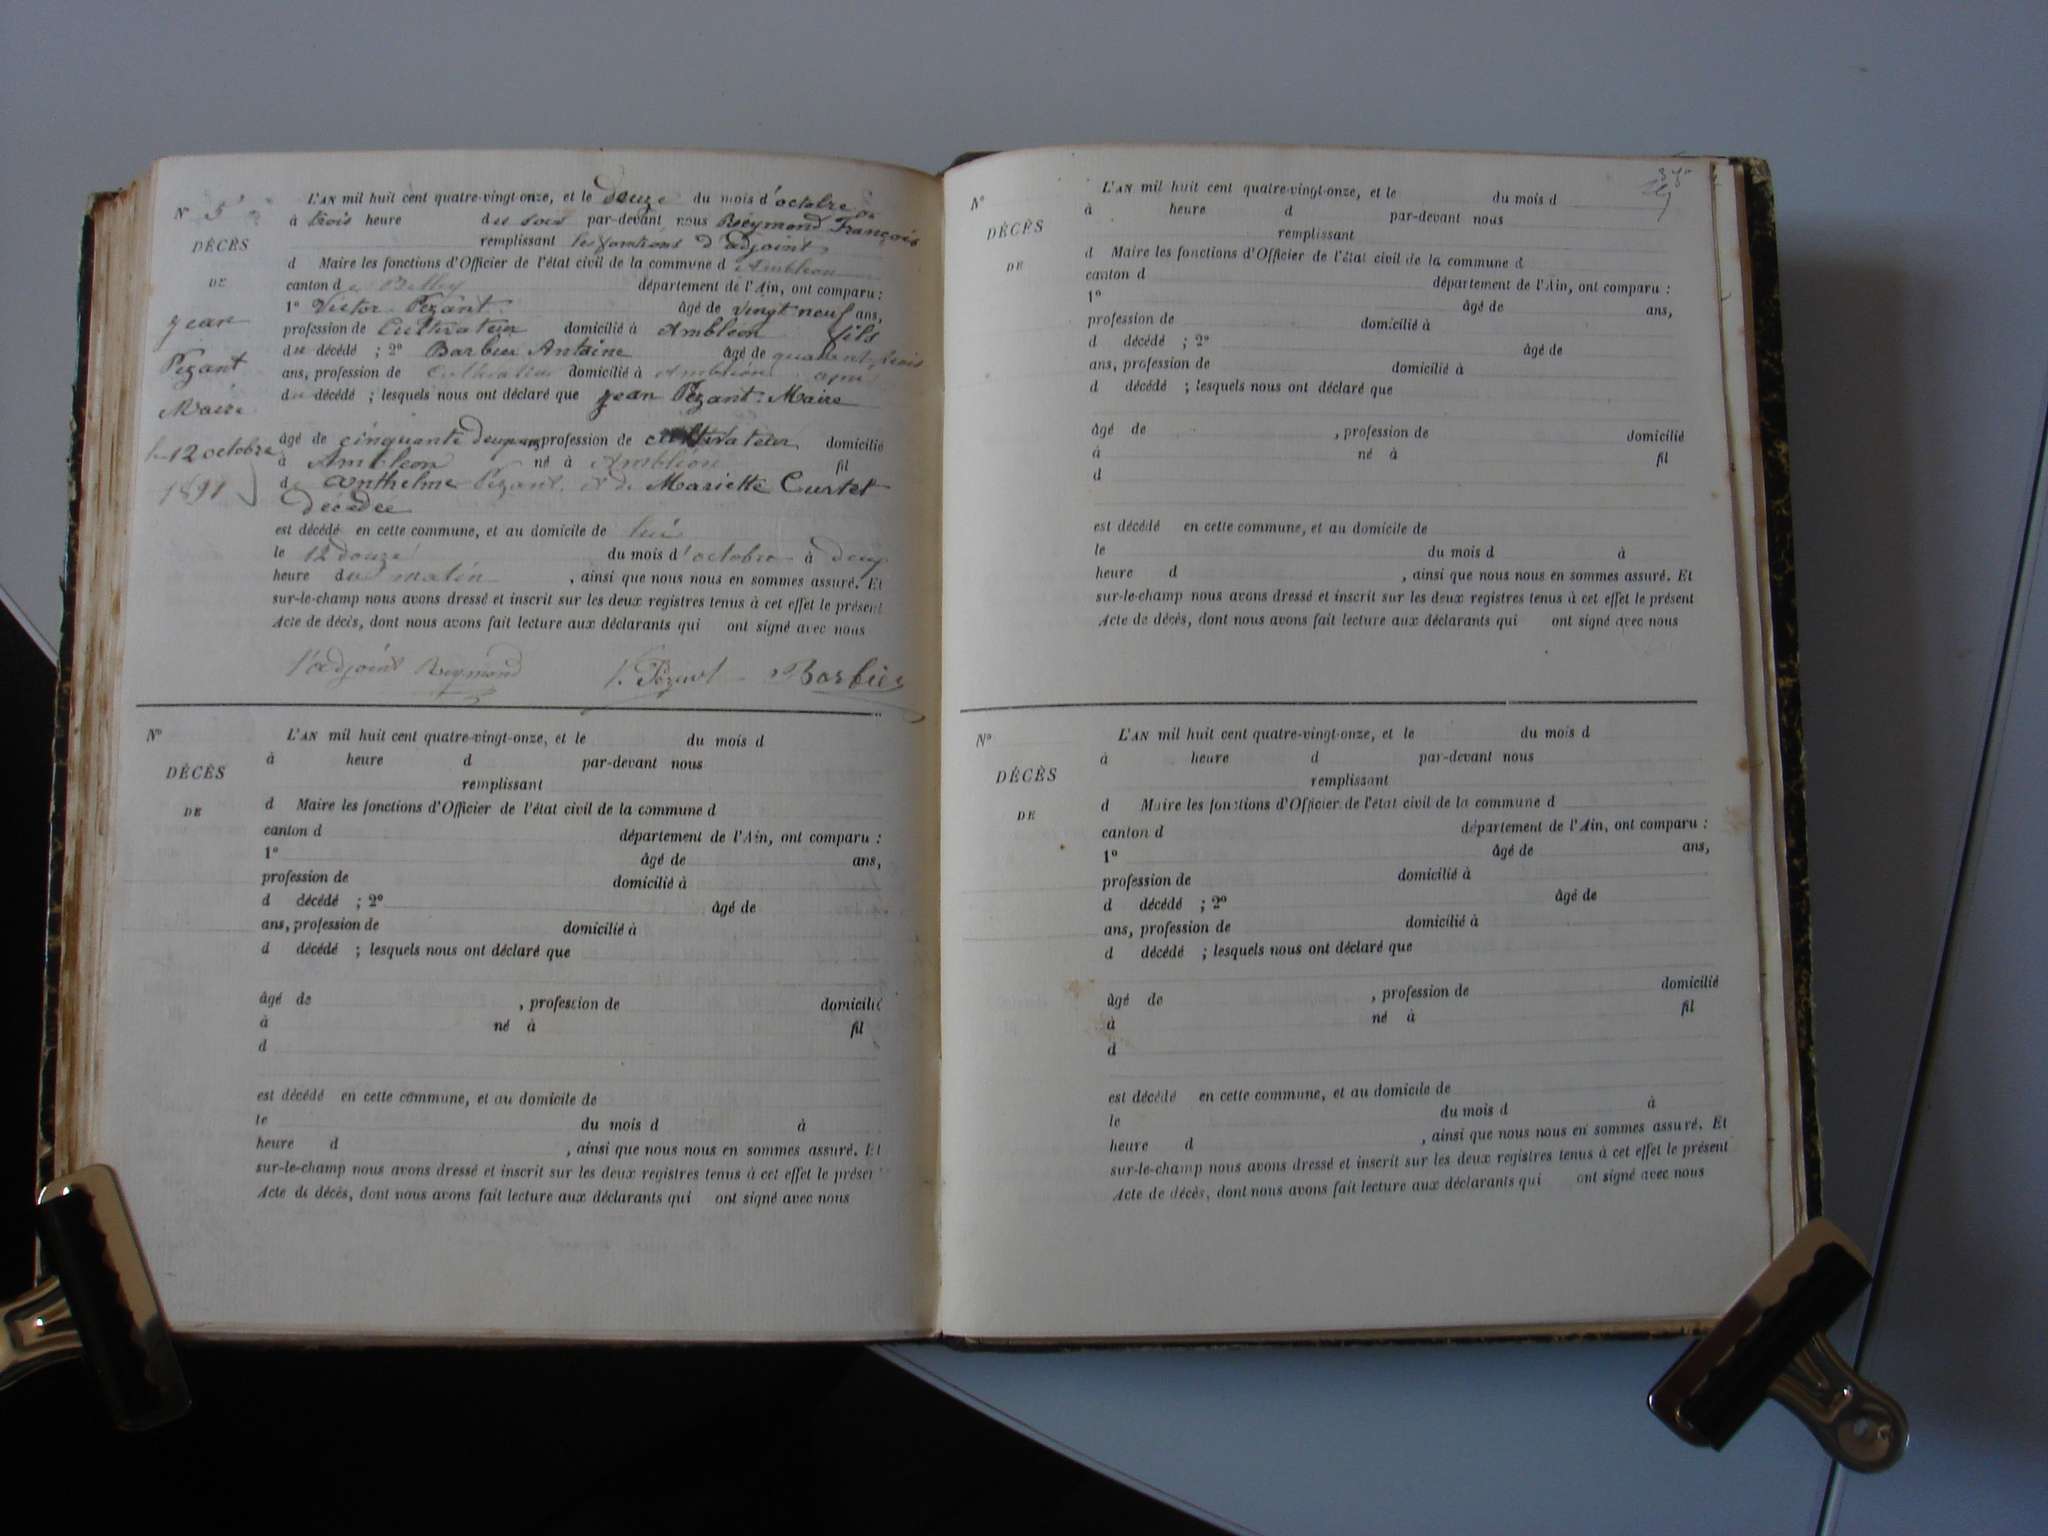 N° 5
DÉCÈS
DE
jean
Pezant
Maire
le 12 octobre
1891
L'AN mil huit cent quatre-vingt-onze, et le douze du mois d'octobre
à trois heure du soir par-devant nous Reymond François
remplissant les fonctions d'adjoint
d Maire les fonctions d'Officier de l'état civil de la commune d Ambléon
canton de Belley département de l'Ain, ont comparu :
1° Victor Pezant âgé de vingt neuf ans,
profession de Cultivateur domicilié à Ambleon fils
du décédé ; 2° Barbier Antoine âgé de quarant trois
ans, profession de Cultivateur domicilié à Ambléon ami
du décédé ; lesquels nous ont déclaré que jean Pezant Maire
âgé de cinquante deux ans profession de cultivateur domicilié
à Ambleon né à Ambléon fil
de Anthelme Pezant et de Mariette Curtet
décédée
est décédé en cette commune, et au domicile de lui
le 12 douze du mois d'octobre à deux
heure du matin , ainsi que nous nous en sommes assuré. Et
sur-le-champ nous avons dressé et inscrit sur les deux registres tenus à cet effet le présent
Acte de décès, dont nous avons fait lecture aux déclarants qui ont signé avec nous
l'adjoint Reymond V. Pezant Barbier
N°
DÉCÈS
DE
L'AN mil huit cent quatre-vingt-onze, et le du mois d
à heure d par-devant nous
remplissant
d Maire les fonctions d'Officier de l'état civil de la commune d
canton d département de l'Ain, ont comparu :
1° âgé de ans,
profession de domicilié à
d décédé ; 2° âgé de
ans, profession de domicilié à
d décédé ; lesquels nous ont déclaré que
âgé de , profession de domicilié
à né à fil
d
est décédé en cette commune, et au domicile de
le du mois d à
heure d , ainsi que nous nous en sommes assuré. Et
sur-le-champ nous avons dressé et inscrit sur les deux registres tenus à cet effet le présen
Acte de décès, dont nous avons fait lecture aux déclarants qui ont signé avec nous
N°
DÉCÈS
DE
L'AN mil huit cent quatre-vingt-onze, et le du mois d
à heure d par-devant nous
remplissant
d Maire les fonctions d'Officier de l'état civil de la commune d
canton d département de l'Ain, ont comparu :
1° âgé de ans,
profession de domicilié à
d décédé ; 2° âgé de
ans, profession de domicilié à
d décédé ; lesquels nous ont déclaré que
âgé de , profession de domicilié
à né à fil
d
est décédé en cette commune, et au domicile de
le du mois d à
heure d , ainsi que nous nous en sommes assuré. Et
sur-le-champ nous avons dressé et inscrit sur les deux registres tenus à cet effet le présent
Acte de décès, dont nous avons fait lecture aux déclarants qui ont signé avec nous
N°
DÉCÈS
DE
L'AN mil huit cent quatre-vingt-onze, et le du mois d
à heure d par-devant nous
remplissant
d Maire les fonctions d'Officier de l'état civil de la commune d
canton d département de l'Ain, ont comparu :
1° âgé de ans,
profession de domicilié à
d décédé ; 2° âgé de
ans, profession de domicilié à
d décédé ; lesquels nous ont déclaré que
âgé de , profession de domicilié
à né à fil
d
est décédé en cette commune, et au domicile de
le du mois d à
heure d , ainsi que nous nous en sommes assuré. Et
sur-le-champ nous avons dressé et inscrit sur les deux registres tenus à cet effet le présent
Acte de décès, dont nous avons fait lecture aux déclarants qui ont signé avec nous